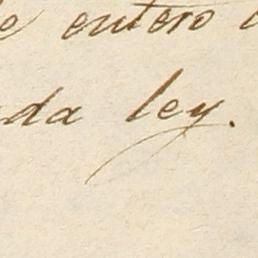 e entero
da ley.